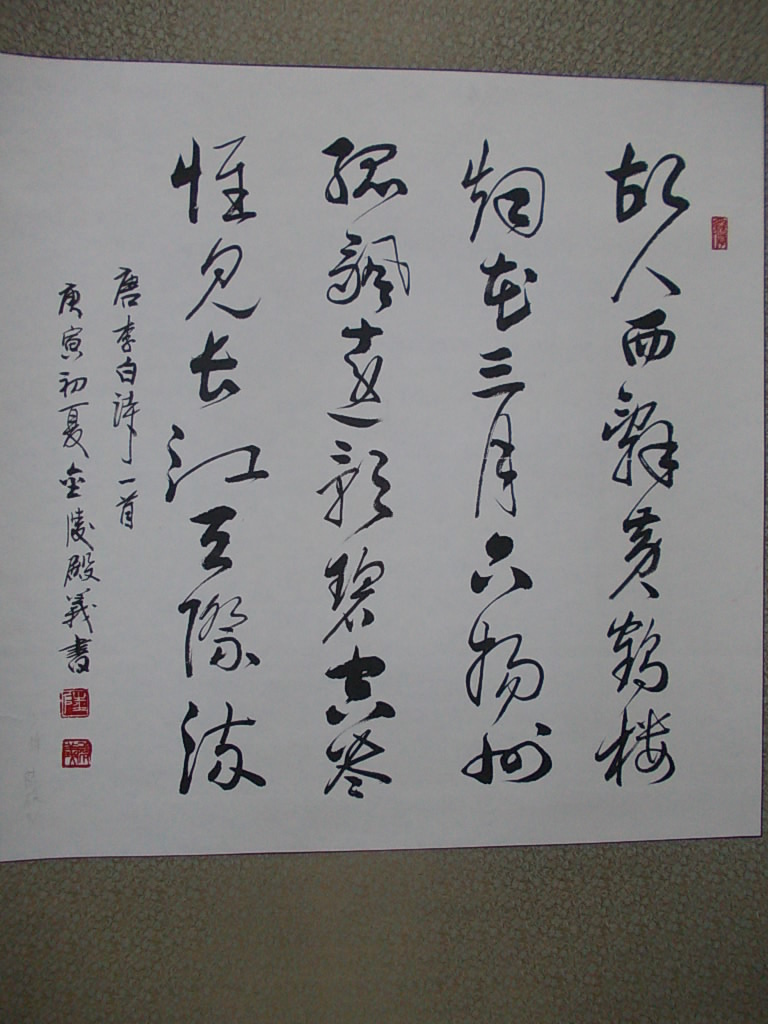 故人西辭黄鶴楼
烟花三月下揚州
孤颿遠影碧空尽
惟見长江天際流
唐李白诗一首
庚寅初夏金陵殿義書